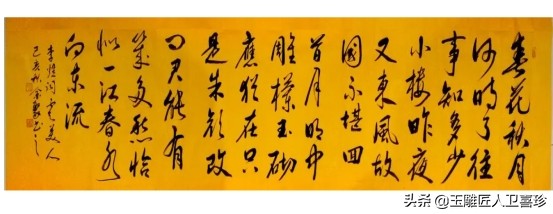 春花秋月
何時了往
事知多少
小楼昨夜
又東風故
國不堪回
首月明中
雕欄玉砌
應犹在只
是朱颜改
问君能有
幾多愁恰
似一江春水
向东流
李煜词虞美人
己亥秋
头条@玉雕匠人卫喜珍